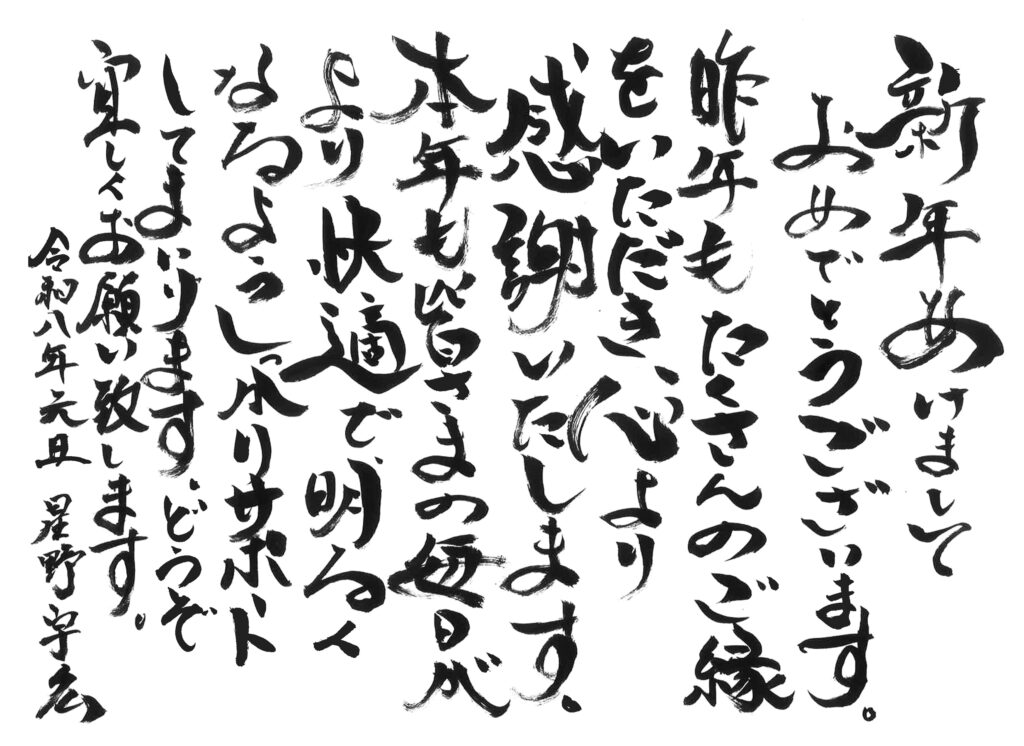 新年あけまして
おめでとうございます。
昨年もたくさんのご縁
をいただき、心より
感謝いたします。
本年も皆さまの毎日が
より快適で、明るく
なるようしっかりサポート
してまいります。どうぞ
宜しくお願い致します。
令和八年元旦 星野宇宏